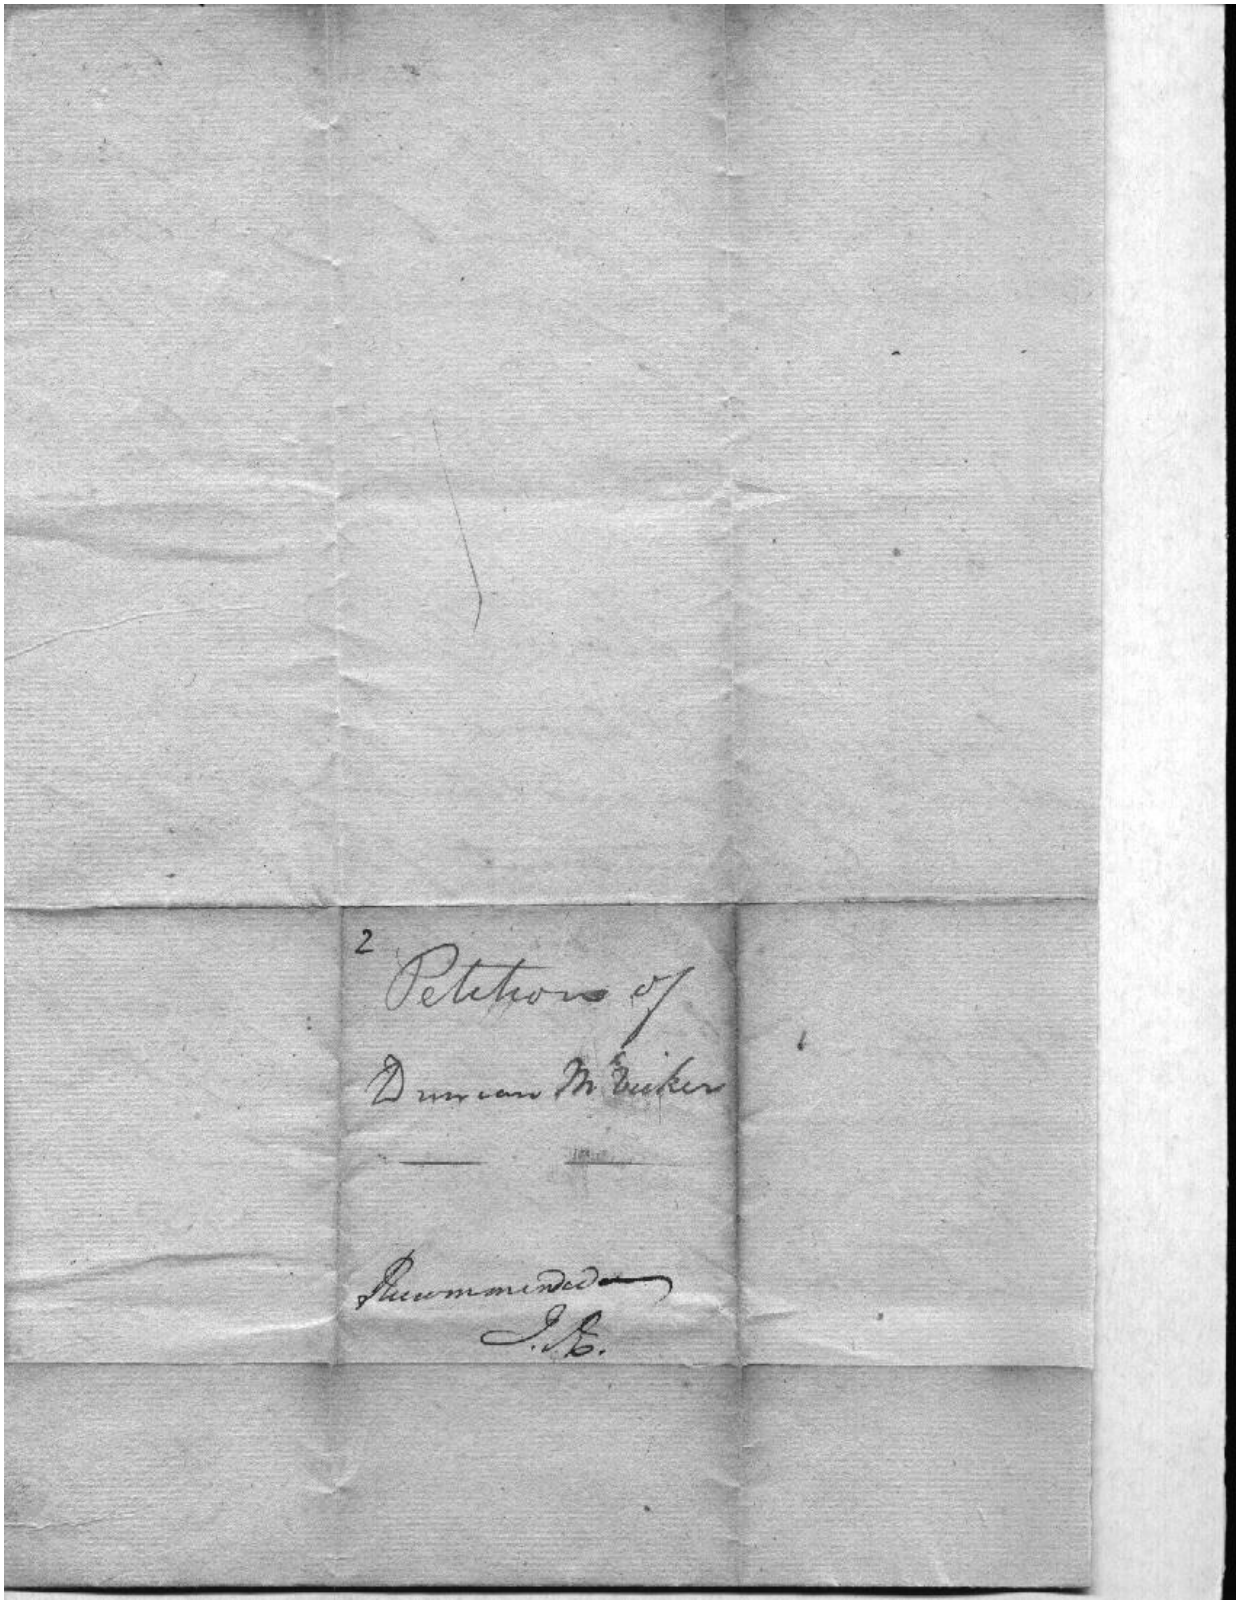 2
Petition of
Duncan McVicker
Recommended
J. E.